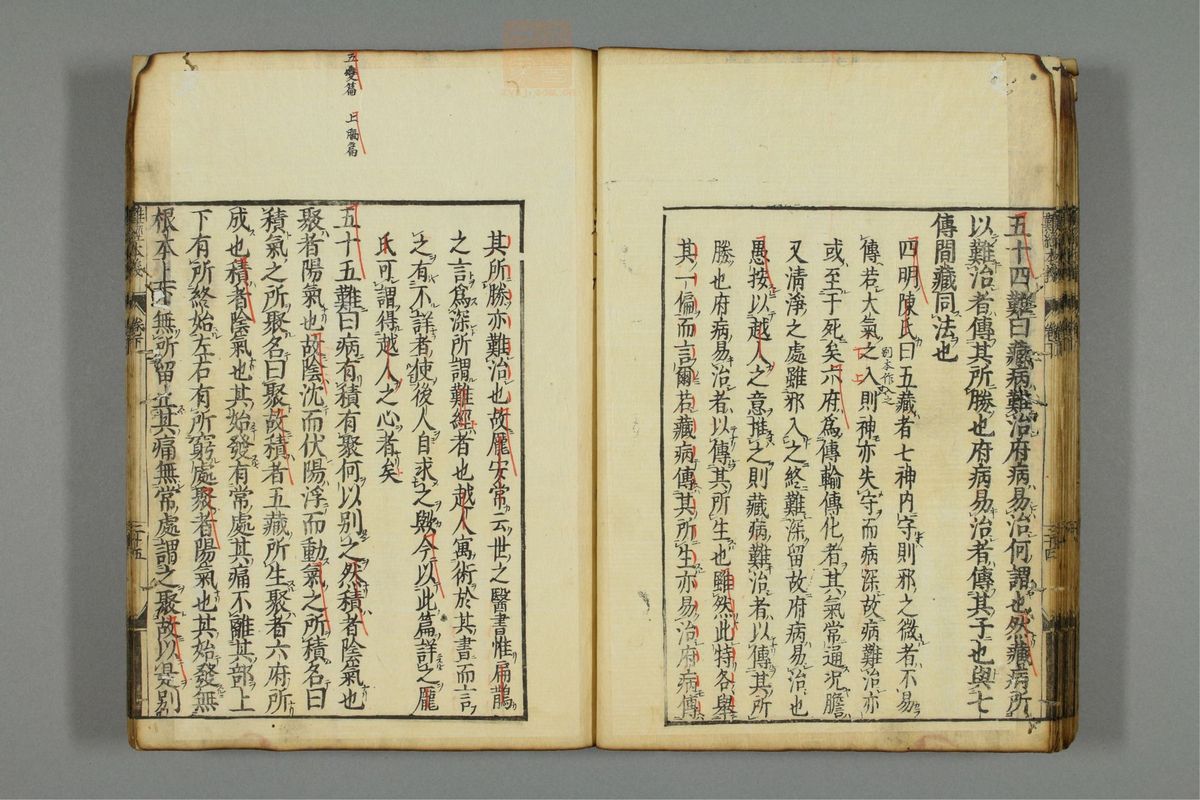 五十四難曰藏病難治府病易治何謂也然藏病所
以難治者傳其所勝也府病易治者傳其子也與七
傳間藏同法也
四明陳氏曰五藏者七神内守則邪之微者不易
傳若大氣之入則神亦失守而病深故病難治亦
別本作
或至于死矣六府爲傳輸傳化者其氣常通况膽
又清淨之處雖邪入之終難深留故府病易治也
愚按以越人之意推之則藏病難治者以傳其所
勝也府病易治者以傳其所生也雖然此特各舉
其一偏而言爾若藏病傳其所生亦易治府病傳
其所勝亦難治也故龐安常云世之醫書惟扁鵲
之言爲深所謂難經者也越人寓術於其書而言
之有不詳者使後人自求之歟今以此篇詳之龐
氏可謂得越人之心者矣
五十五難曰病有積有聚何以别之然積者陰氣也
聚者陽氣也故陰沈而伏陽浮而動氣之所積名曰
積氣之所聚名曰聚故積者五藏所生聚者六府所
成也積者陰氣也其始發有常處其痛不離其部上
下有所終始左右有所窮處聚者陽氣也其始發無
根本上下無所留止其痛無常處謂之聚故以是别
五變篇 上膈篇
卷下